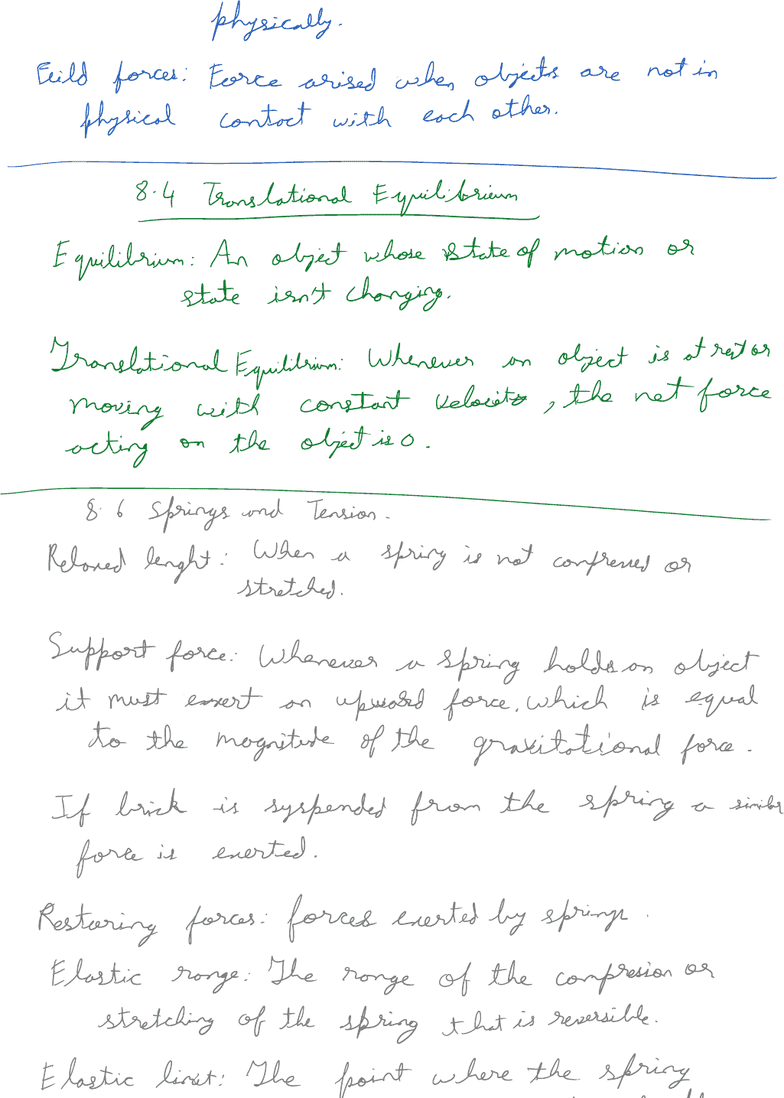 physically.
Feild forces: Force arised when objects are not in
physical contact with each other.
8.4 Translational Equilibrium
Equilibrium: An object whose state of motion or
state isn't changing.
Translational Equilibrium: Whenever an object is at rest or
moving with constant velocity, the net force
acting on the object is 0.
8.6 Springs and Tension.
Relaxed lenght: When a spring is not compressed or
stretched.
Support force: Whenever a spring holds an object
it must exert an upward force, which is equal
to the magnitude of the gravitational force.
If brick is syspended from the spring a similar
force is exerted.
Restoring forces: forces exerted by springs.
Elastic range: The range of the compresion or
stretching of the spring that is reversible.
Elastic limit: The point where the spring